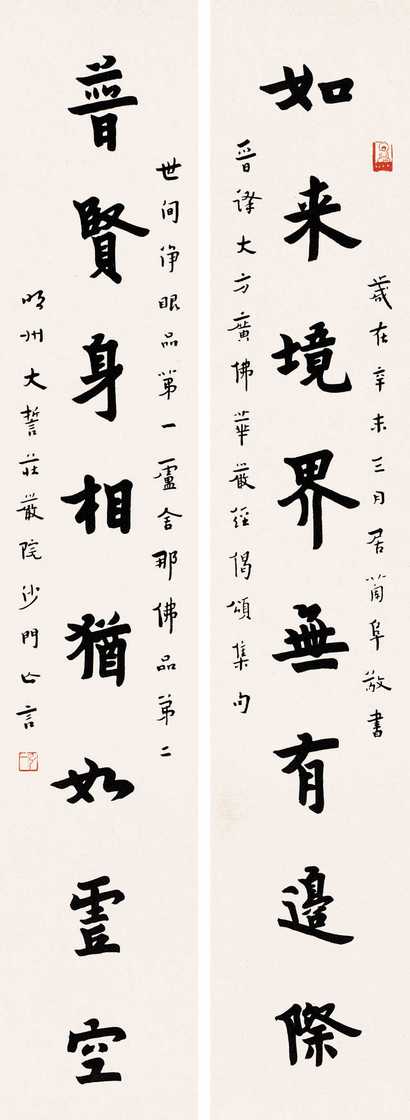 歲在辛未三月居蕳阜敬書
如来境界無有邊際
晉譯大方廣佛華嚴經偈頌集句
世间淨眼品第一盧舍那佛品第二
普賢身相猶如虛空
明州大誓莊嚴院沙門亡言